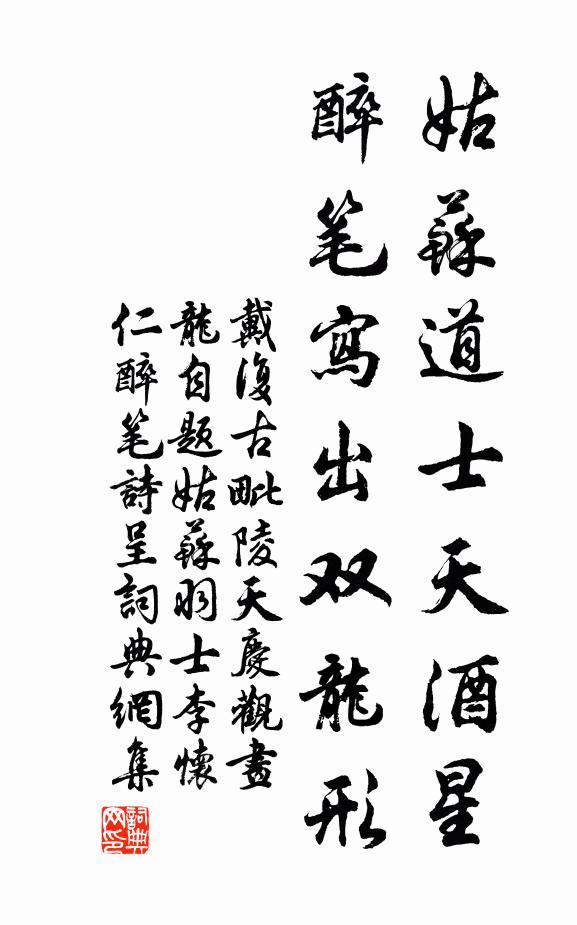 姑蘇道士天酒星
醉笔寫出双龍形
戴復古毗陵天慶觀畫
龍自題姑蘇羽士李懷
仁醉笔詩呈詞典網集
詞典网印